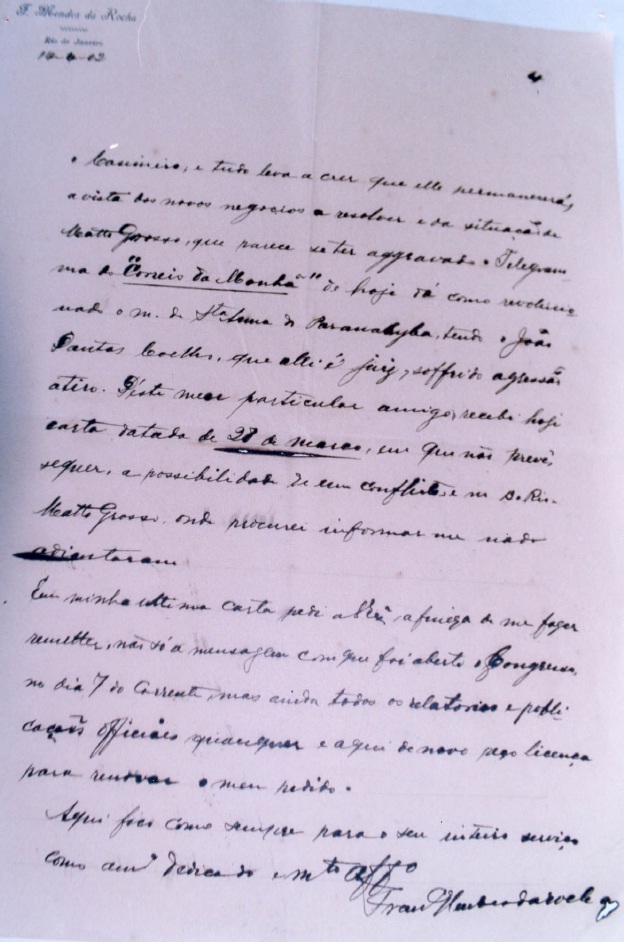 F. Mendes da Rocha
Rio de Janeiro
4
o Casimiro, e tudo leva a crer que elle permanecerá,
a vista dos novos negocios a resolver e da situação de
Matto Grosso, que parece se ter aggravado. o Telegram-
ma do "Correio da Manhã" de hoje dá como revolucio-
nado o m. de Stª Anna de Paranahyba, tendo o João
Dantas Coelho, que alli é juiz, soffrido agressão
a tiro. Deste meu particular amigo, recebi hoje
carta datada de 28 de março, em que não prevê,
sequer, a possibilidade de um conflicto e no B. Rio-
Matto Grosso, onde procurei informar-me nada
adiantaram
Em minha ultima carta pedi a V Exª a fineza de me fazer
remetter, não só a mensagem com que foi aberto o Congresso,
no dia 7 do corrente, mas ainda todos os relatorios e publi-
cações officiaes quaesquer e aqui de novo peço licença
para renovar o meu pedido.
Aqui fico como sempre para o seu inteiro serviço
como amº dedicado e mto affº
Franº Mendes da Rocha